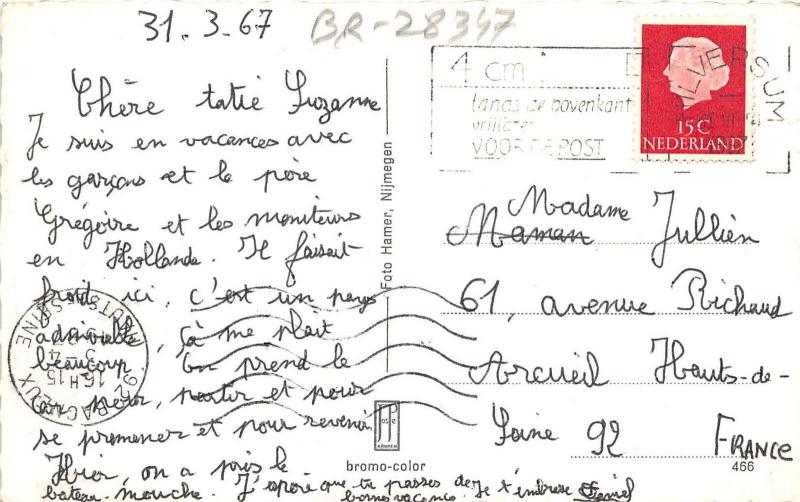 31.3.67
BR-28347
Chère tatie Suzanne
Je suis en vacances avec
les garçons et le père
Grégoire et les moniteurs
en Hollande. Il faisait
froid ici, c'est un pays
admirable, çà me plait
beaucoup. On prend le
car pour partir et pour
se promener et pour revenir.
Hier, on a pris le
bateau-mouche. J'espère que tu passes de
bonnes vacances. Je t'embrasse
Foto Hamer, Nijmegen
JosPé
ARNHEM
bromo-color
4 cm
langs de bovenkant
vrijlaten
VOOR DE POST
HILVERSUM
15 C
NEDERLAND
Madame
Maman Jullien
61, avenue Richaud
Arcueil Hauts-de-
Seine 92 FRANCE
466
92 BAGNEUX
16H15
3-4
HAUTS DE SEINE